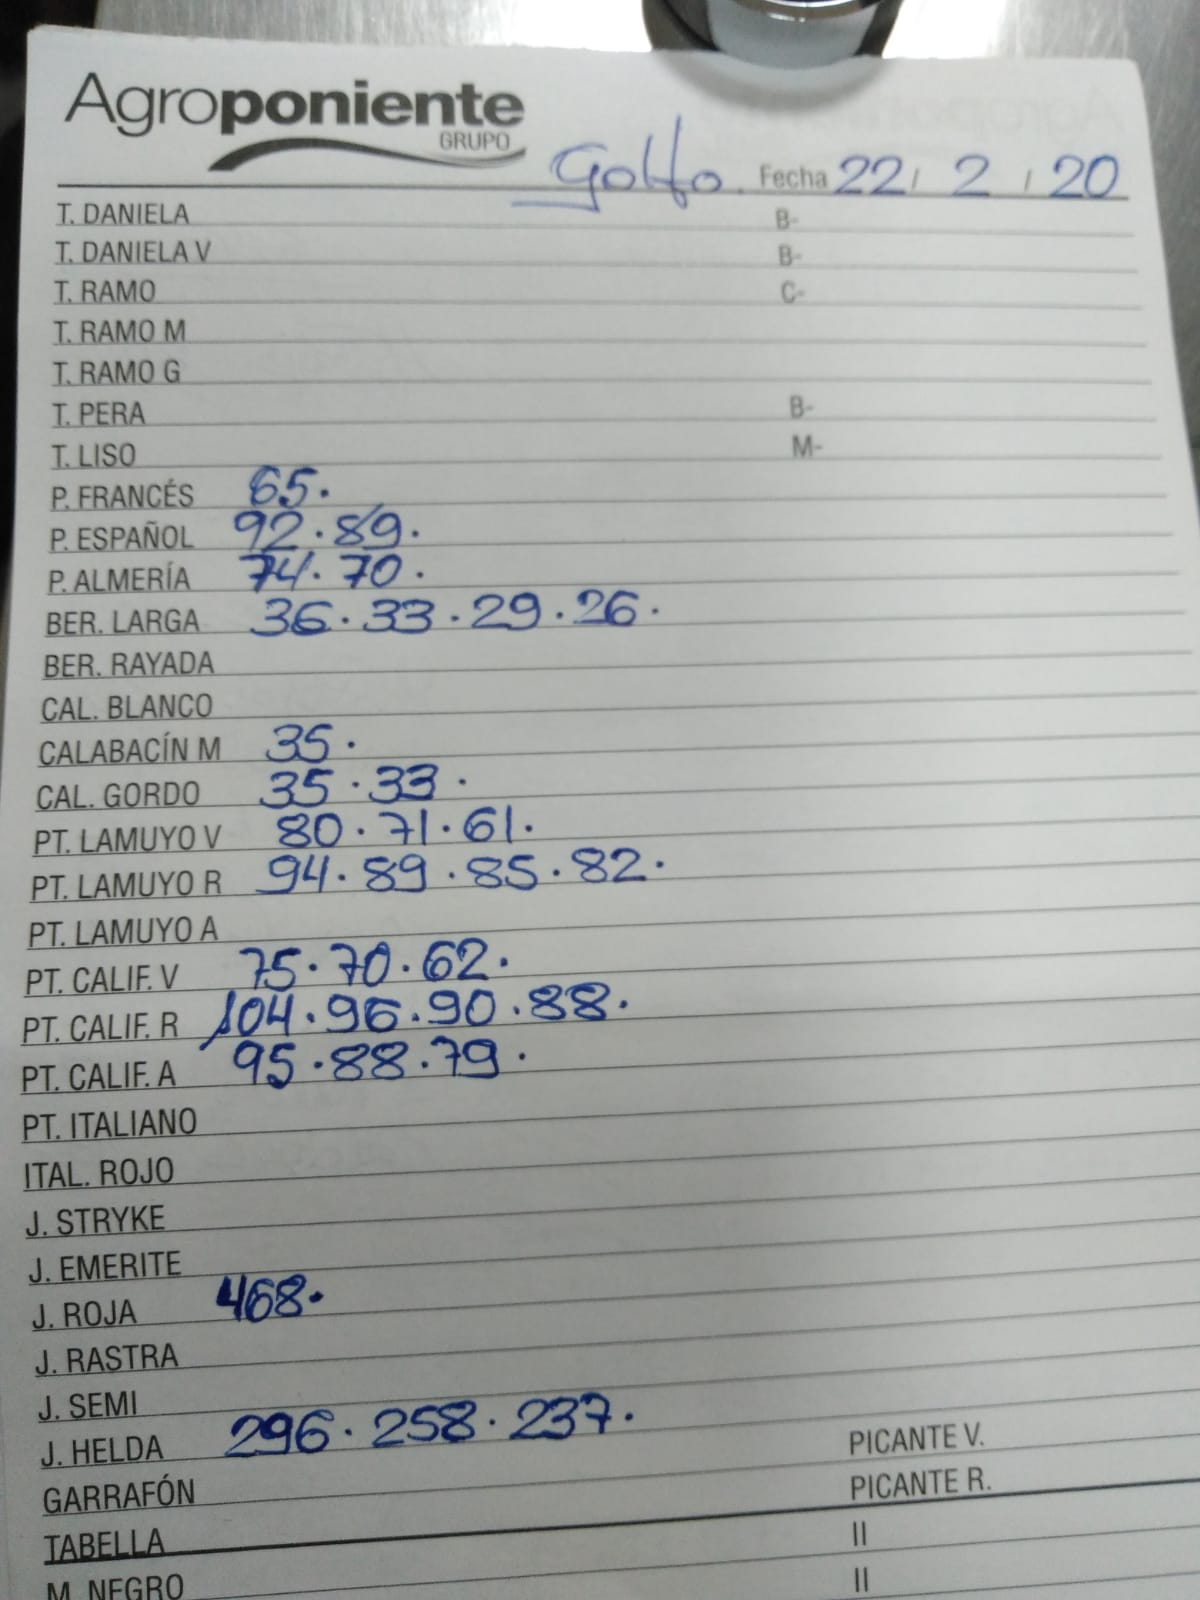 Agroponiente
GRUPO
Golfo. Fecha 22/ 2 / 20
T. DANIELA B-
T. DANIELA V B-
T. RAMO C-
T. RAMO M
T. RAMO G
T. PERA B-
T. LISO M-
P. FRANCÉS 65.
P. ESPAÑOL 92.89.
P. ALMERÍA 74.70.
BER. LARGA 36.33.29.26.
BER. RAYADA
CAL. BLANCO
CALABACÍN M 35.
CAL. GORDO 35.33.
PT. LAMUYO V 80.71.61.
PT. LAMUYO R 94.89.85.82.
PT. LAMUYO A
PT. CALIF. V 75.70.62.
PT. CALIF. R 104.96.90.88.
PT. CALIF. A 95.88.79.
PT. ITALIANO
ITAL. ROJO
J. STRYKE
J. EMERITE
J. ROJA 468.
J. RASTRA
J. SEMI
J. HELDA 296.258.237.
GARRAFÓN PICANTE V.
TABELLA PICANTE R.
M. NEGRO II
II